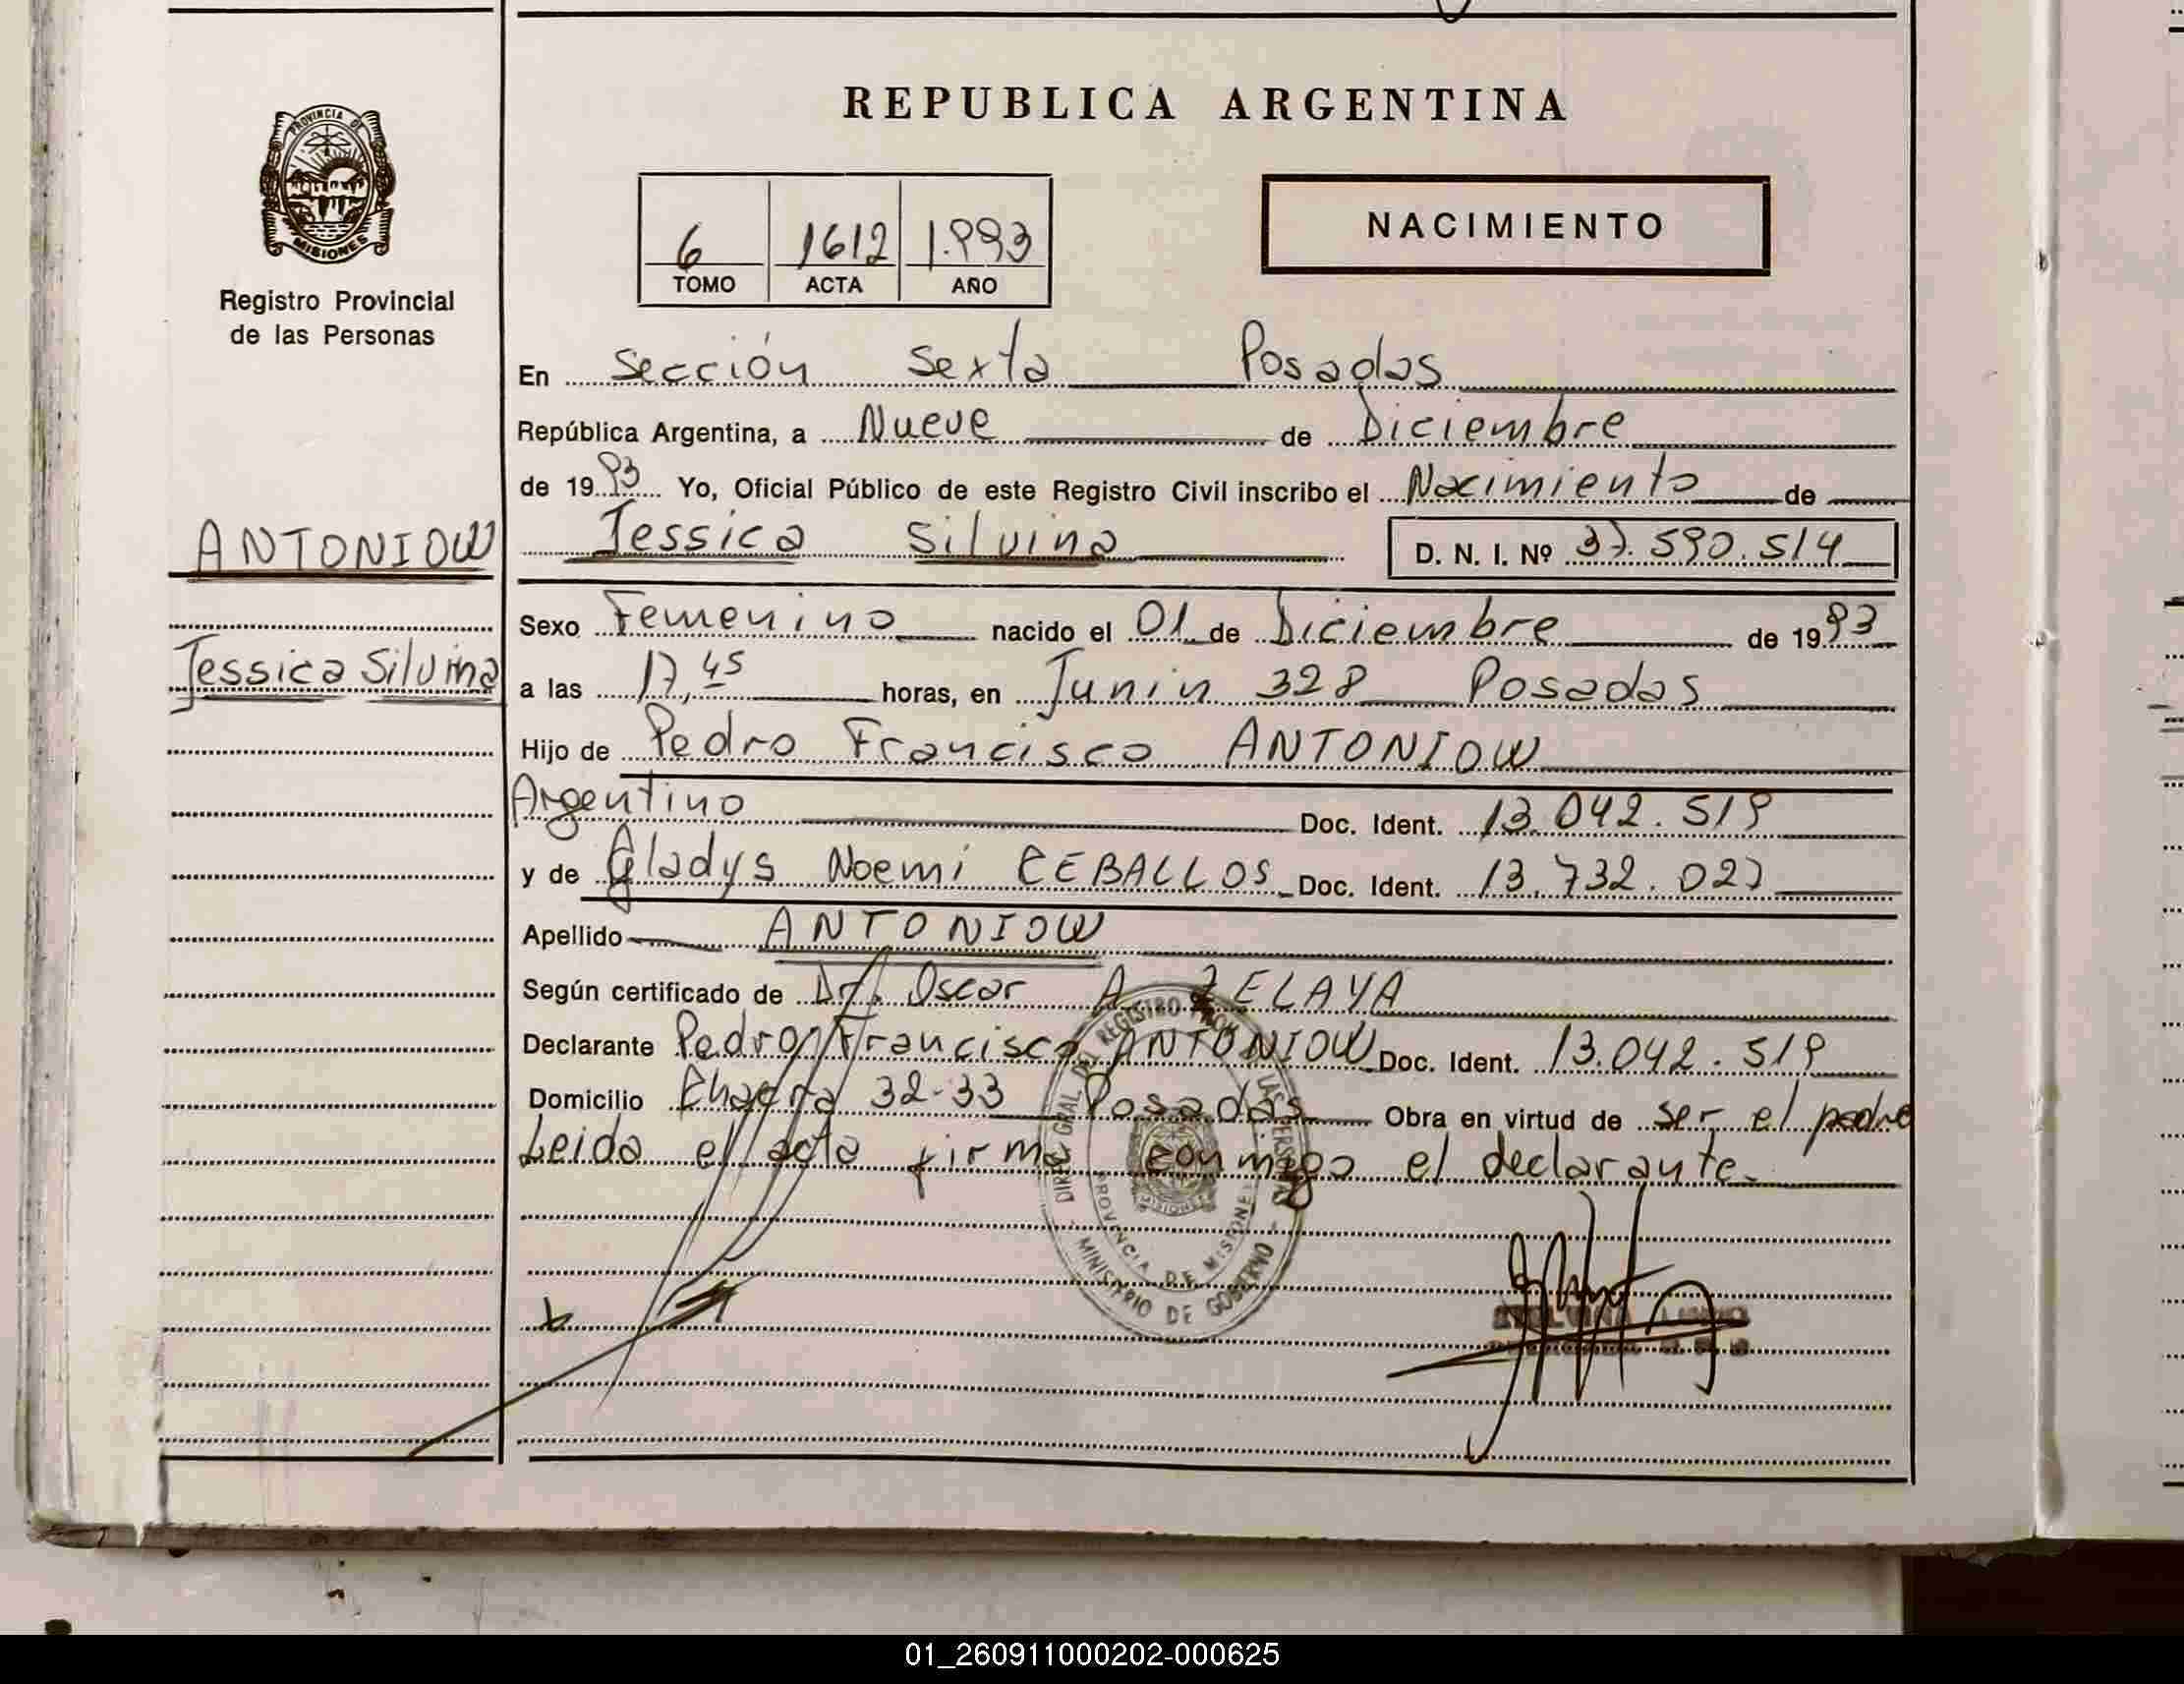 REPUBLICA ARGENTINA
PROVINCIA DE
MISIONES
Registro Provincial
de las Personas
NACIMIENTO
6 1612 1.993
TOMO ACTA AÑO
En Sección Sexta Posadas
República Argentina, a Nueve de Diciembre
de 1993 Yo, Oficial Público de este Registro Civil inscribo el Nacimiento de
ANTONIOW
Jessica Silvina D. N. I. Nº 37.590.514
Sexo Femenino nacido el 01 de Diciembre de 1993
Jessica Silvina
a las 17,45 horas, en Junin 328 Posadas
Hijo de Pedro Francisco ANTONIOW
Argentino Doc. Ident. 13.042.519
y de Gladys Noemi CEBALLOS Doc. Ident. 13.732.027
Apellido ANTONIOW
Según certificado de Dr. Oscar A. ZELAYA
Declarante Pedro Francisco ANTONIOW Doc. Ident. 13.042.519
Domicilio Chacra 32-33 Posadas Obra en virtud de ser el padre
Leida el acta firma conmigo el declarante.
DIREC. GRAL. DEL REGISTRO PROV. LAS PERSONAS
PROVINCIA DE MISIONES
MINISTERIO DE GOBIERNO
01_260911000202-000625